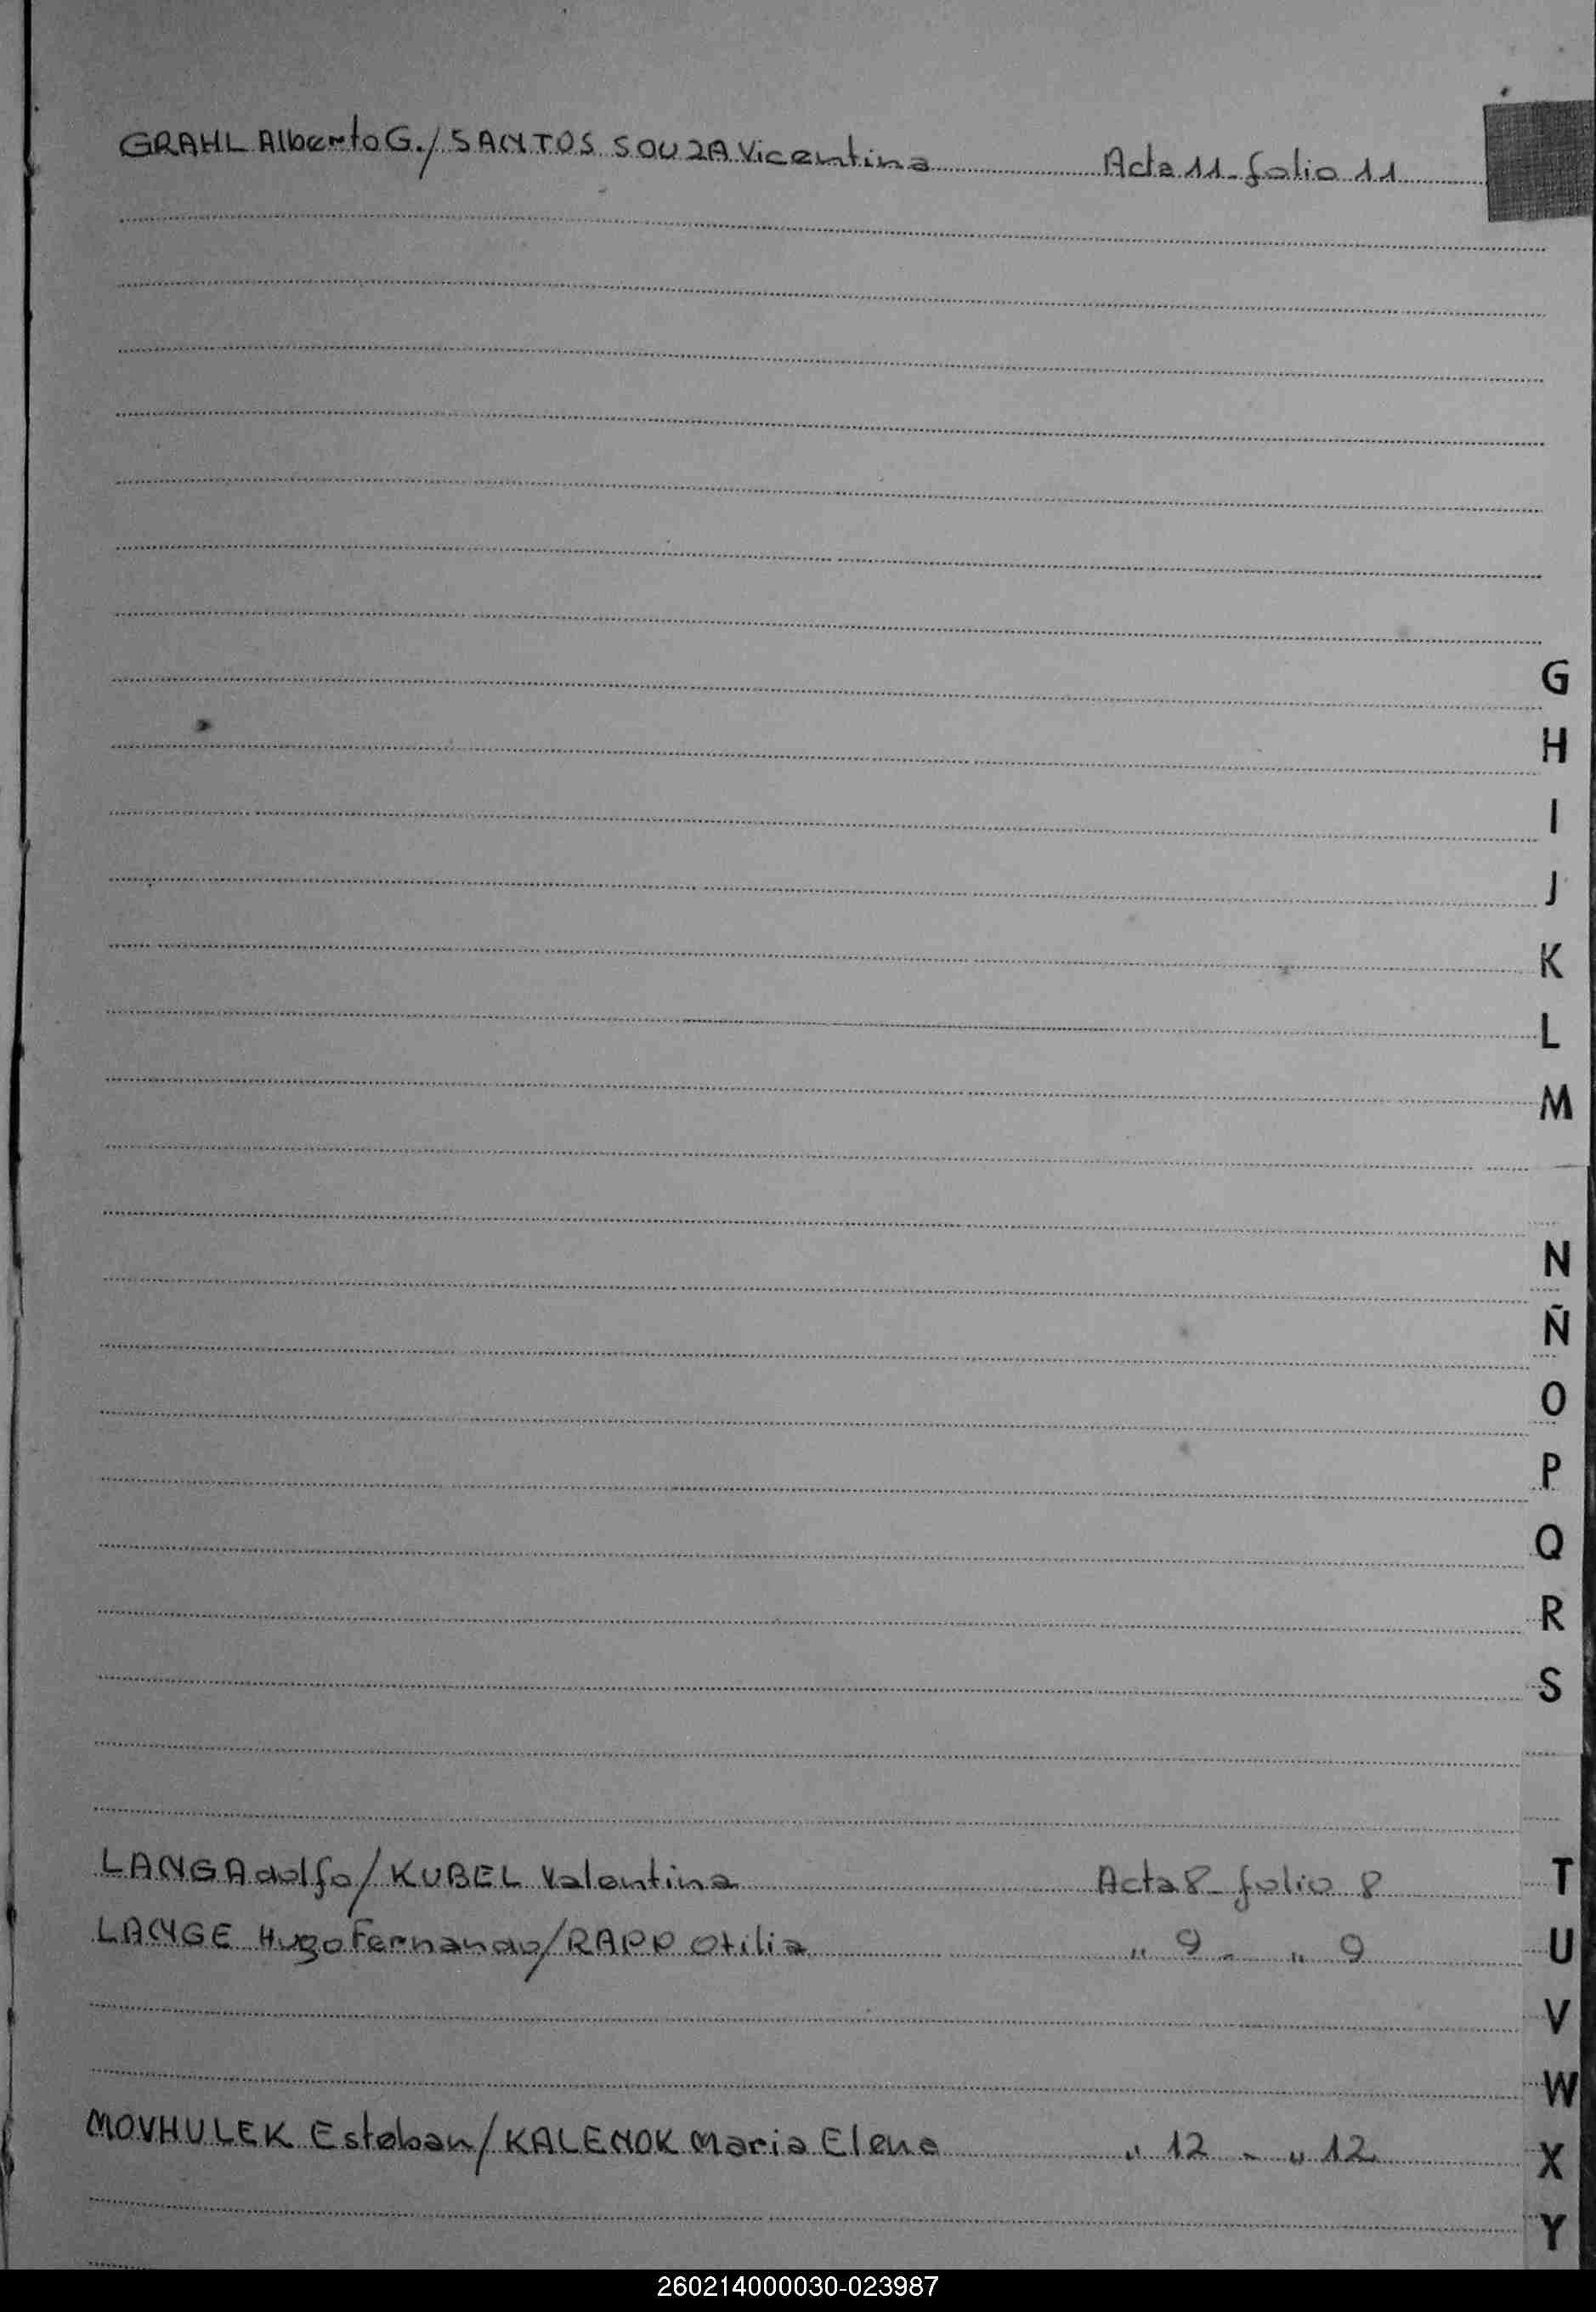 GRAHL Alberto G./SANTOS SOUZA Vicentina Acta 11 - folio 11
G
H
I
J
K
L
M
N
Ñ
O
P
Q
R
S
LANG Adolfo/KUBEL Valentina Acta 8 - folio 8
T
LANGE Hugo Fernando/RAPP Otilia " 9 - " 9
U
V
W
MOVHULEK Esteban/KALENOK Maria Elena " 12 - " 12
X
Y
260214000030-023987